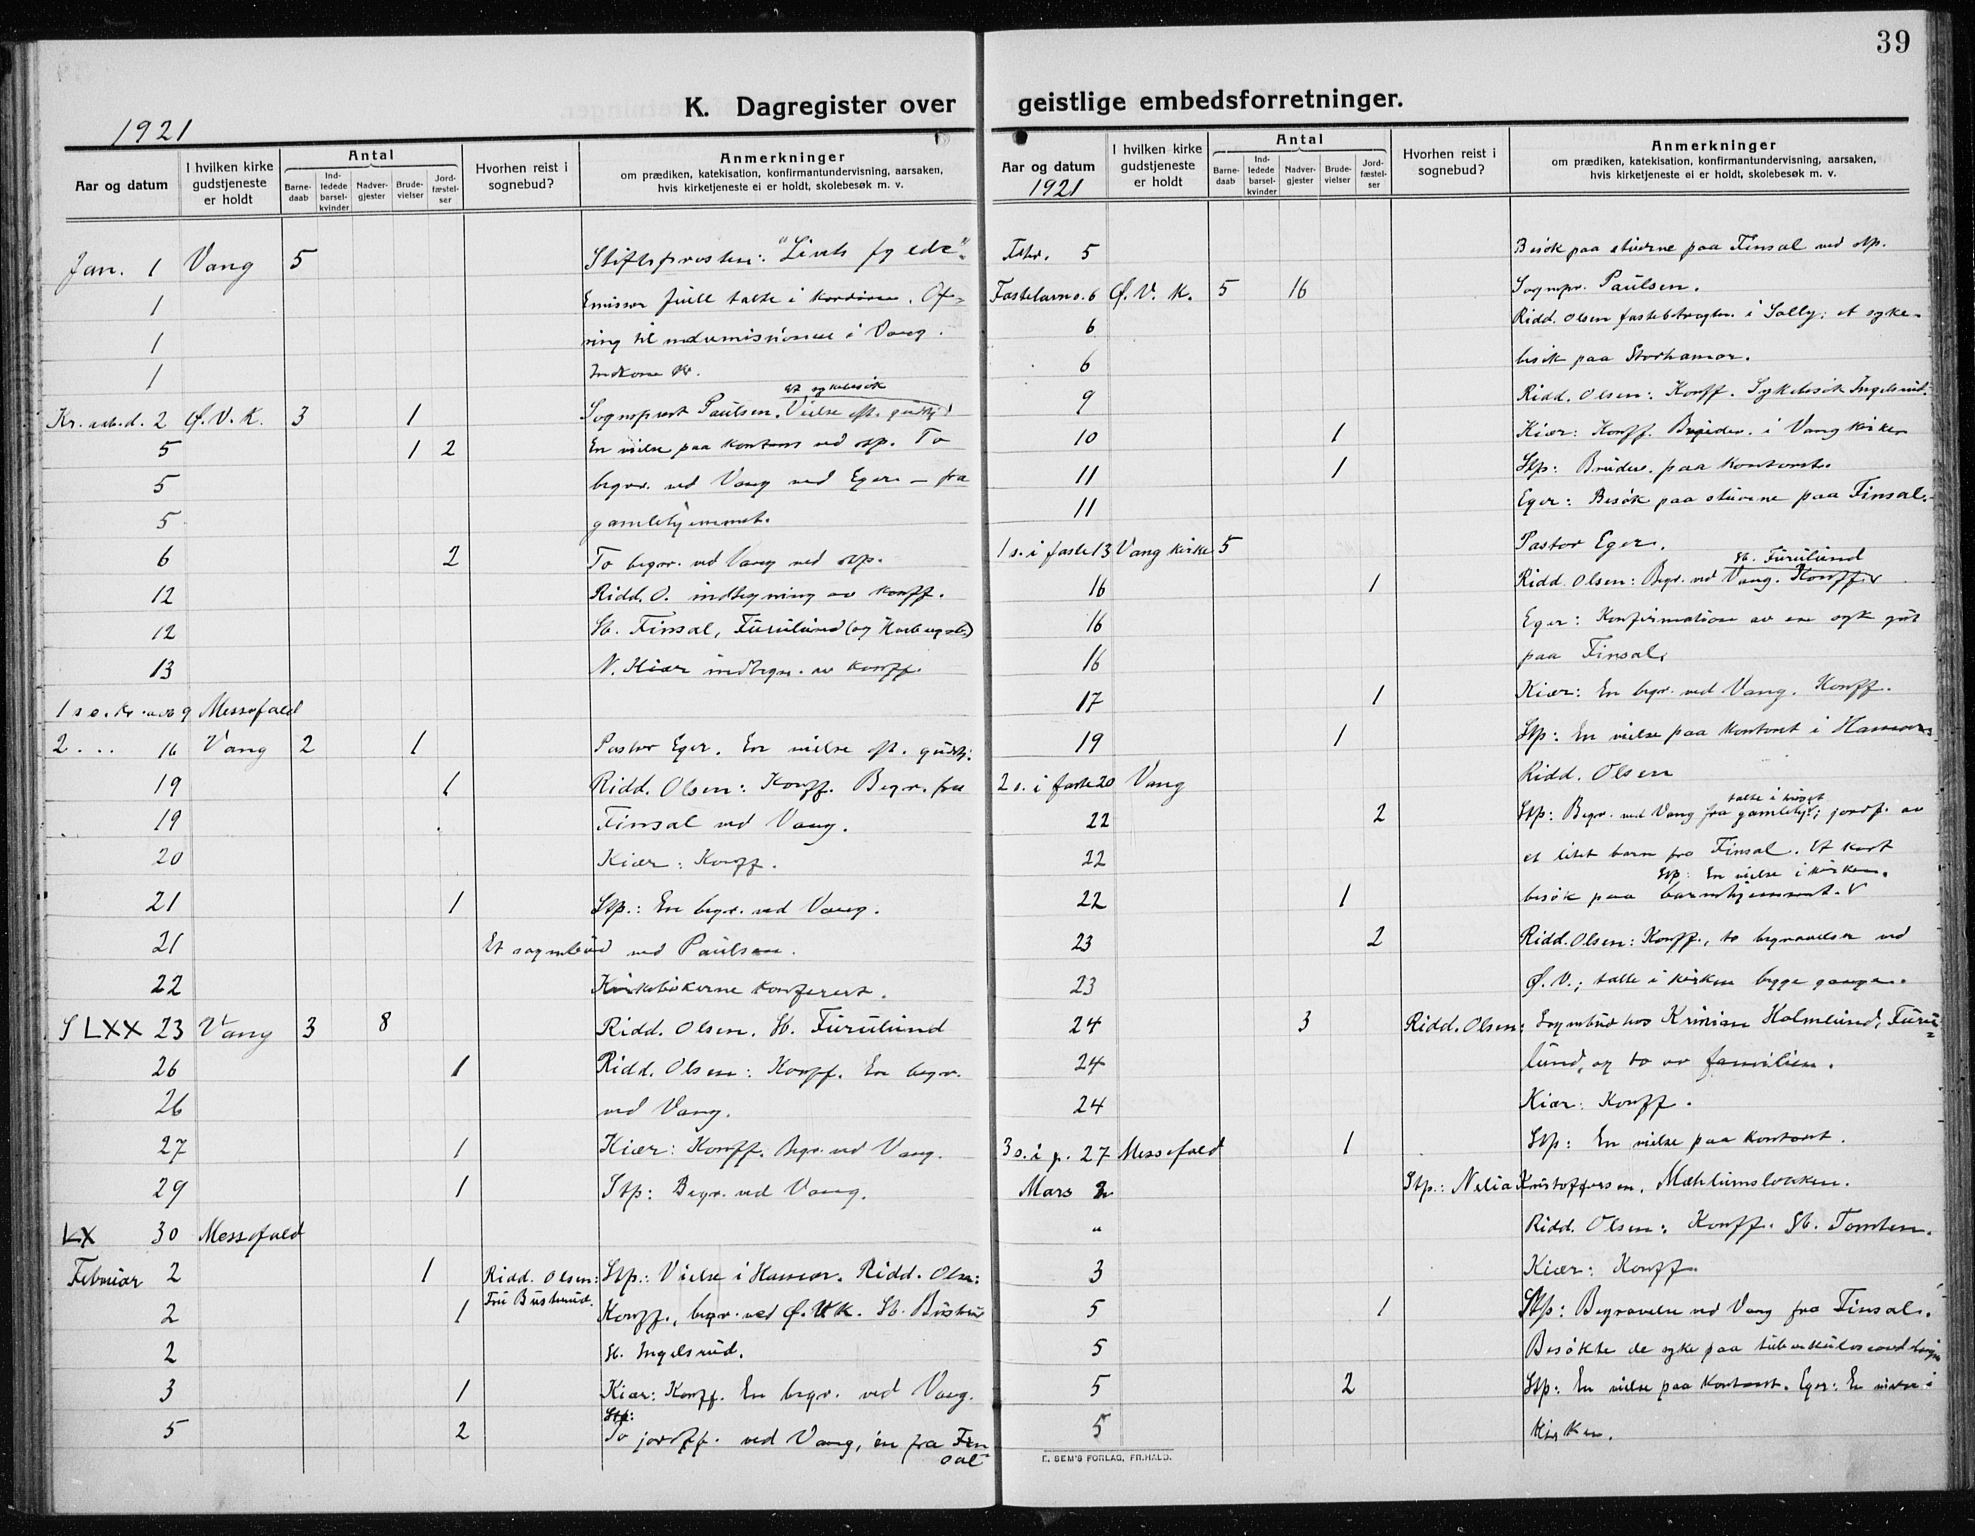 39
K. Dagregister over geistlige embedsforretninger.
1921
Aar og datum
I hvilken kirke gudstjeneste er holdt
Antal
Barne-daab
Ind-ledede barsel-kvinder
Nadver-gjester
Brude-vielser
Jord-fæstel-ser
Hvorhen reist i sognebud?
Anmerkninger
om prædiken, katekisation, konfirmantundervisning, aarsaken,
hvis kirketjeneste ei er holdt, skolebesøk m. v.
Jan. 1 Vang 5 Stiftsprosten:
1 Emissær talte i . Of-
1 ring til i Vang.
1 Indkom kr.
et sykebesøk
Kr. aab. d. 2 Ø. V. K. 3 1 Sogneprest Paulsen. Vielse eft. gudstj.
5 1 2 En vielse paa kontoret ved stp. To
5 begrv. ved Vang ved Eger – fra
5 gamlehjemmet.
6 2 To begrv. ved Vang ved stp.
12 Ridd. O. indtegning av konff.
12 Sb. Finsal, Furulund (og )
13 N. Kiær indtegn. av konff.
1 s. e. Kr. aab 9 Messefald
2 . . . 16 Vang 2 1 Pastor Eger. En vielse eft. gudstj.
19 1 Ridd. Olsen: Konff. Begr. fra
19 Finsal ved Vang.
20 Kiær: Konff.
21 1 Stp.: En begr. ved Vang.
21 Et sognebud ved Paulsen.
22 Kirkebøkerne konferert.
S LXX 23 Vang 3 8 Ridd. Olsen. Sb. Furulund
26 1 Ridd. Olsen: Konff. En begr.
26 ved Vang.
27 1 Kiær: Konff. Begr. ved Vang.
29 1 Stp: Begr. ved Vang.
LX 30 Messefald
Februar 2 1 Ridd. Olsen: Stp.: Vielse i Hamar. Ridd. Olsen:
2 Fru Busterud. 1 Konff., begr. ved Ø. V K. Sb. Busterud
2 Sb. Ingelsrud.
3 1 Kiær: Konff. En begr. ved Vang.
Stp:
5 2 To jordff. ved Vang, én fra Fin-
sal
Aar og datum
1921
I hvilken kirke gudstjeneste er holdt
Antal
Barne-daab
Ind-ledede barsel-kvinder
Nadver-gjester
Brude-vielser
Jord-fæstel-ser
Hvorhen reist i sognebud?
Anmerkninger
om prædiken, katekisation, konfirmantundervisning, aarsaken,
hvis kirketjeneste ei er holdt, skolebesøk m. v.
Febr. 5 Besøk paa stuerne paa Finsal ved stp.
Fastelavns. 6 Ø. V. K. 5 16 Sognepr. Paulsen.
6 Ridd. Olsen i ; et syke-
6 besøk paa Storhamar.
9 Ridd. Olsen: Konff. Sykebesøk Ingelsrud.
10 1 Kiær: Konff. Brudev. i Vang kirke
11 1 Stp: Brudev. paa kontoret.
11 Eger: Besøk paa stuerne paa Finsal.
1 s. i faste 13 Vang kirke 5 Pastor Eger.
Sb. Furulund
16 1 Ridd. Olsen: Begr. ved Vang. Konff.
16 Eger: Konfirmation av en syk gut
16 paa Finsal.
17 1 Kiær: En begr. ved Vang. Konff.
19 1 Stp: En vielse paa kontoret i Hamar.
2 s. i faste 20 Vang Ridd. Olsen
talte i huset
22 2 Stp: Begr. ved Vang fra gamlehj.; jordf. av
22 et litet barn fra Finsal. Et kort
Stp: En vielse i kirken.
22 1 besøk paa barnehjemmet. V
23 2 Ridd. Olsen: Konff., to begravelser ved
23 Ø. V.; talte i kirken begge ganger.
24 3 Ridd. Olsen: Sognebud hos Holmlund, Furu-
24 lund, og to av familien.
24 Kiær: Konff.
3 s. i f. 27 Messefald 1 Stp: En vielse paa kontoret.
Mars 2 Stp.: Nelia Kristoffersen,
" Ridd. Olsen: Konff. Sb. Tomten.
3 Kiær: Konff.
5 1 Stp: Begravelse ved Vang fra Finsal.
5 Besøkte de syke paa
5 2 Stp: En vielse paa kontoret. Eger: En vielse i
5 Kirken.
E. SEM'S FORLAG, FR.HALD.